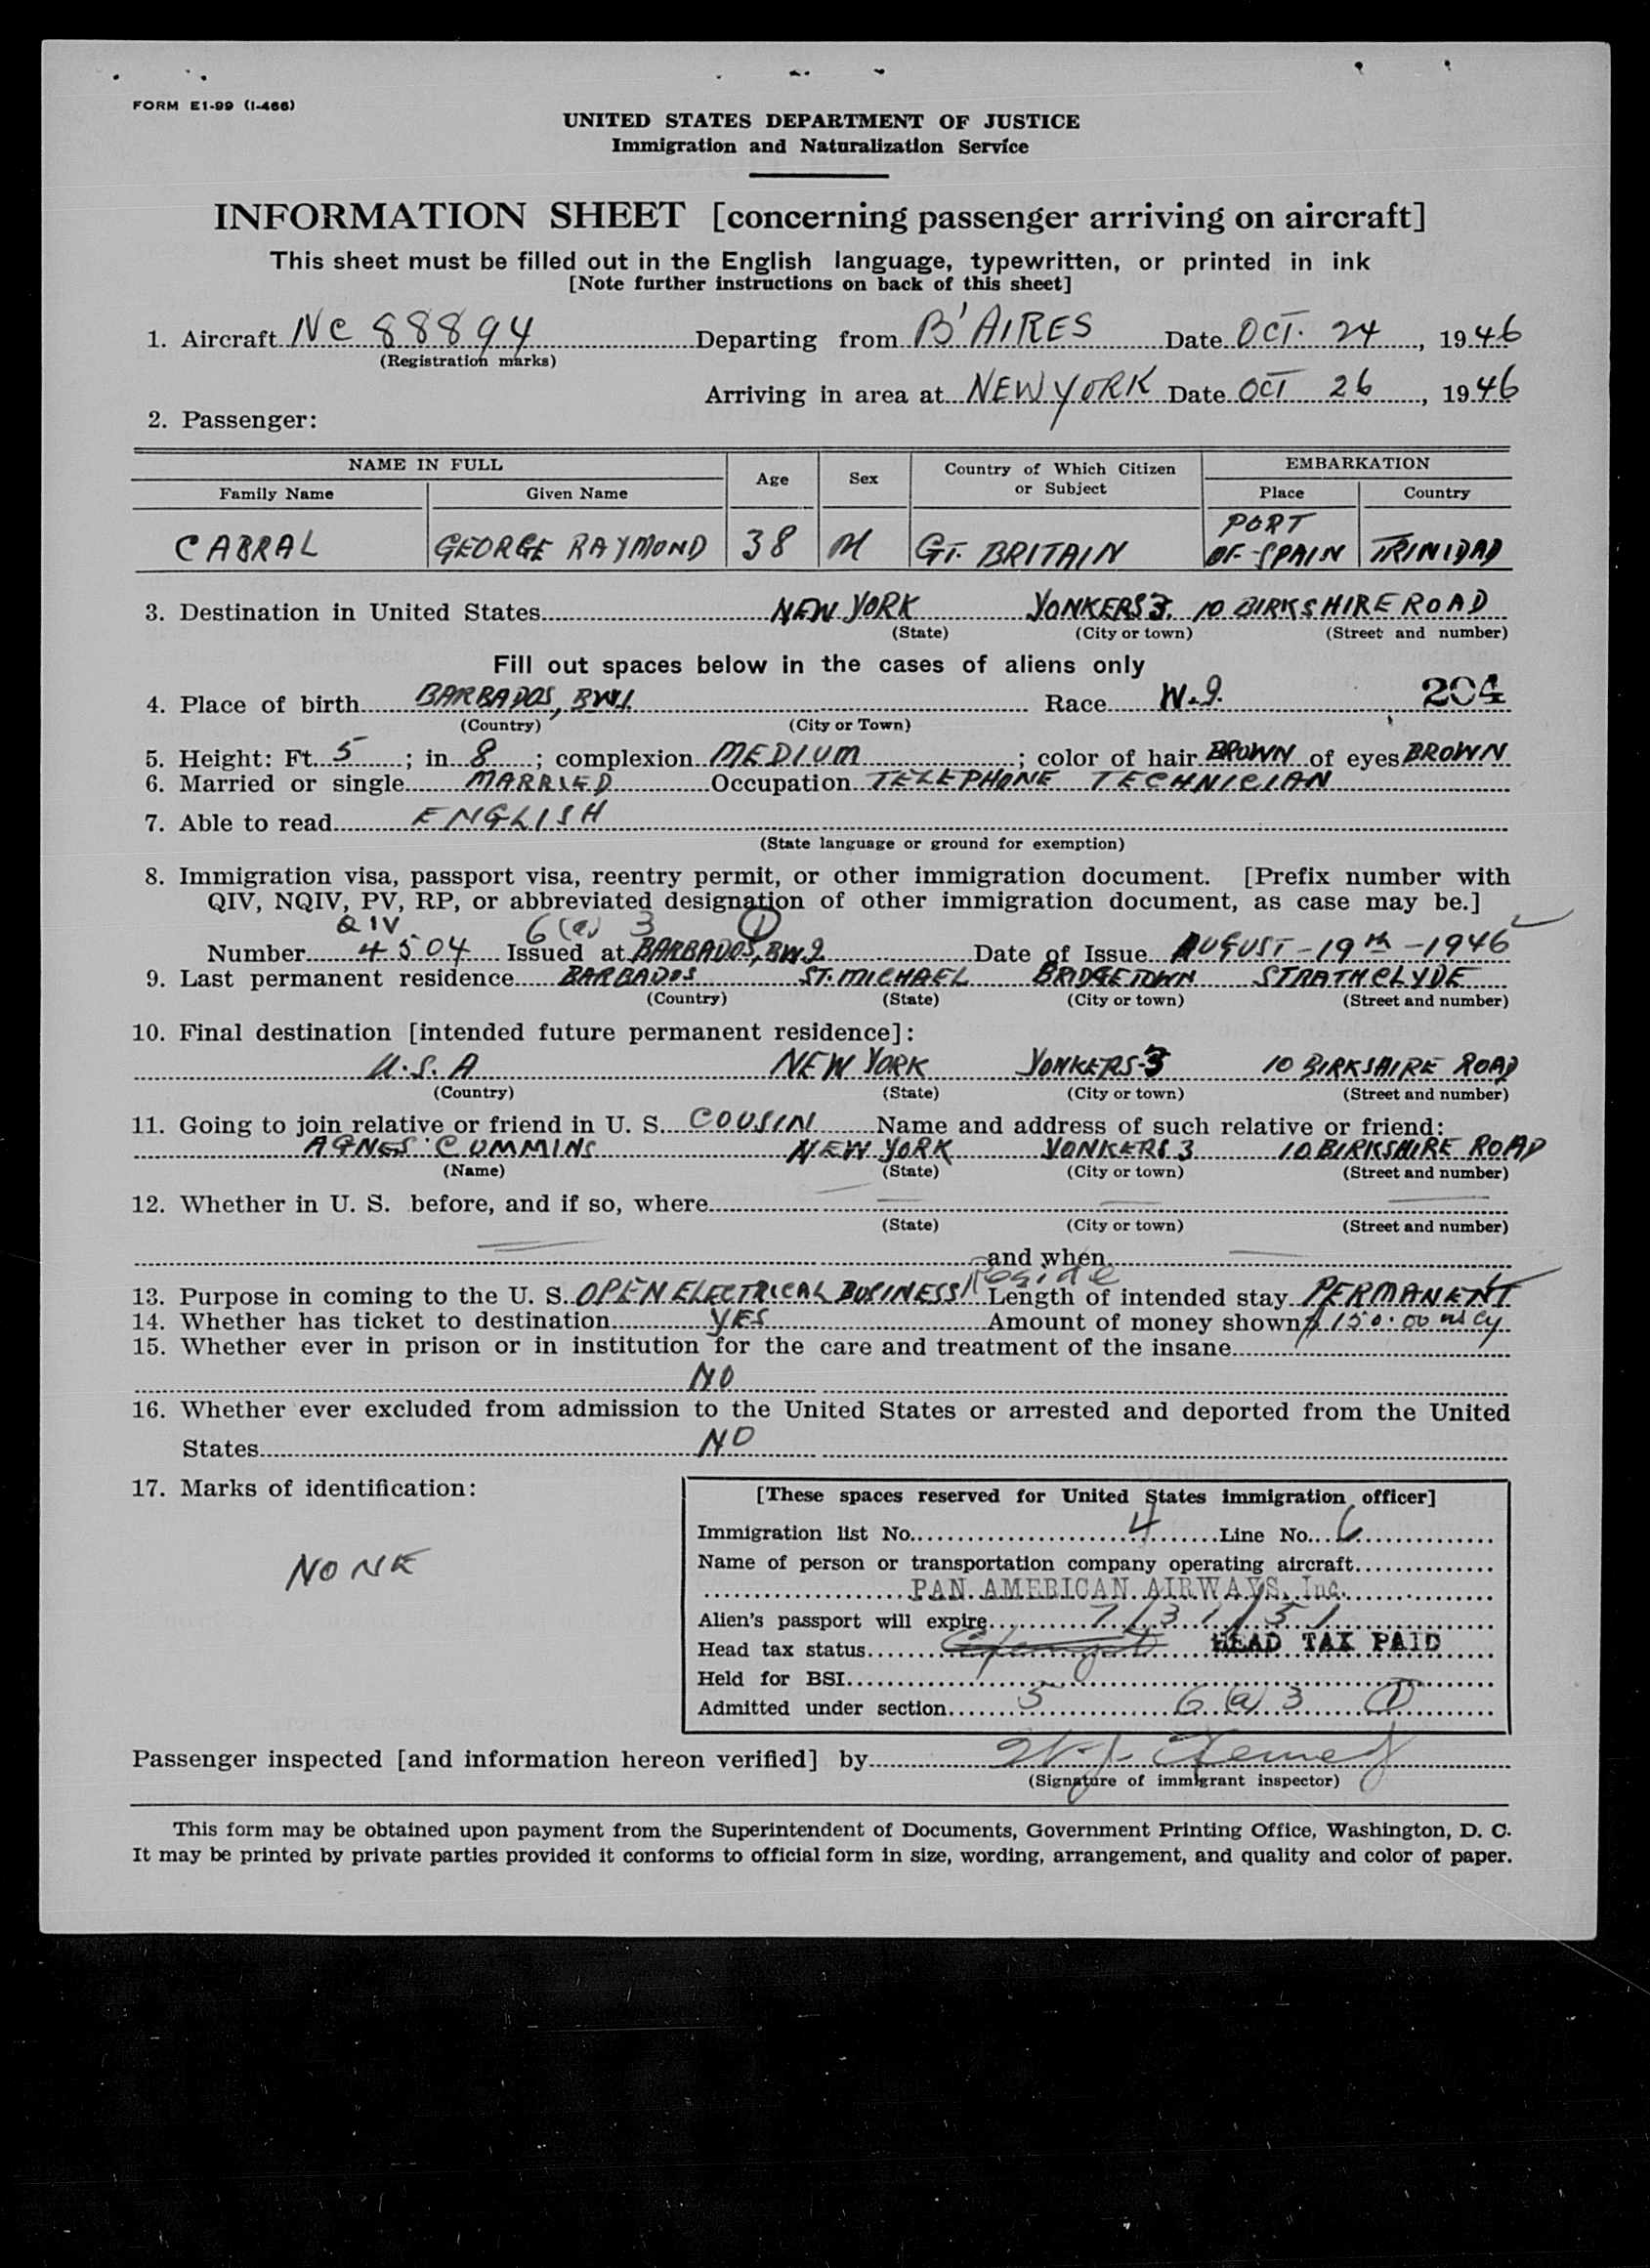 FORM E1-99 (I-466)
UNITED STATES DEPARTMENT OF JUSTICE
Immigration and Naturalization Service
INFORMATION SHEET [concerning passenger arriving on aircraft]
This sheet must be filled out in the English language, typewritten, or printed in ink
[Note further instructions on back of this sheet]
1. Aircraft NC 88894 Departing from B'AIRES Date OCT. 24, 1946
(Registration marks)
Arriving in area at NEW YORK Date OCT 26, 1946
2. Passenger:
NAME IN FULL Age Sex Country of Which Citizen or Subject EMBARKATION
Family Name Given Name Place Country
CABRAL GEORGE RAYMOND 38 M GT. BRITAIN PORT OF-SPAIN TRINIDAD
3. Destination in United States NEW YORK YONKERS 3. 10 BIRKSHIRE ROAD
(State) (City or town) (Street and number)
Fill out spaces below in the cases of aliens only
4. Place of birth BARBADOS, BWI. Race W.I. 204
(Country) (City or Town)
5. Height: Ft. 5; in 8; complexion MEDIUM; color of hair BROWN of eyes BROWN
6. Married or single MARRIED Occupation TELEPHONE TECHNICIAN
7. Able to read ENGLISH
(State language or ground for exemption)
8. Immigration visa, passport visa, reentry permit, or other immigration document. [Prefix number with
QIV, NQIV, PV, RP, or abbreviated designation of other immigration document, as case may be.]
QIV. 6(a) 3 (1)
Number 4504 Issued at BARBADOS, BWI Date of Issue AUGUST-19th-1946
9. Last permanent residence BARBADOS ST. MICHAEL BRIDGETOWN STRATHCLYDE
(Country) (State) (City or town) (Street and number)
10. Final destination [intended future permanent residence]:
U.S.A NEW YORK YONKERS-3 10 BIRKSHIRE ROAD
(Country) (State) (City or town) (Street and number)
11. Going to join relative or friend in U. S. COUSIN Name and address of such relative or friend:
AGNES CUMMINS NEW YORK YONKERS 3 10 BIRKSHIRE ROAD
(Name) (State) (City or town) (Street and number)
12. Whether in U. S. before, and if so, where
(State) (City or town) (Street and number)
and when
reside
13. Purpose in coming to the U. S. OPEN ELECTRICAL BUSINESS Length of intended stay PERMANENT
14. Whether has ticket to destination YES Amount of money shown $150.00 us cy
15. Whether ever in prison or in institution for the care and treatment of the insane
NO
16. Whether ever excluded from admission to the United States or arrested and deported from the United
States NO
17. Marks of identification:
NONE
[These spaces reserved for United States immigration officer]
Immigration list No. 4 Line No. 6
Name of person or transportation company operating aircraft
PAN AMERICAN AIRWAYS, Inc.
Alien's passport will expire 7/31/51
Head tax status HEAD TAX PAID
Held for BSI
Admitted under section 5 6(a) 3 (1)
Passenger inspected [and information hereon verified] by
(Signature of immigrant inspector)
This form may be obtained upon payment from the Superintendent of Documents, Government Printing Office, Washington, D. C.
It may be printed by private parties provided it conforms to official form in size, wording, arrangement, and quality and color of paper.